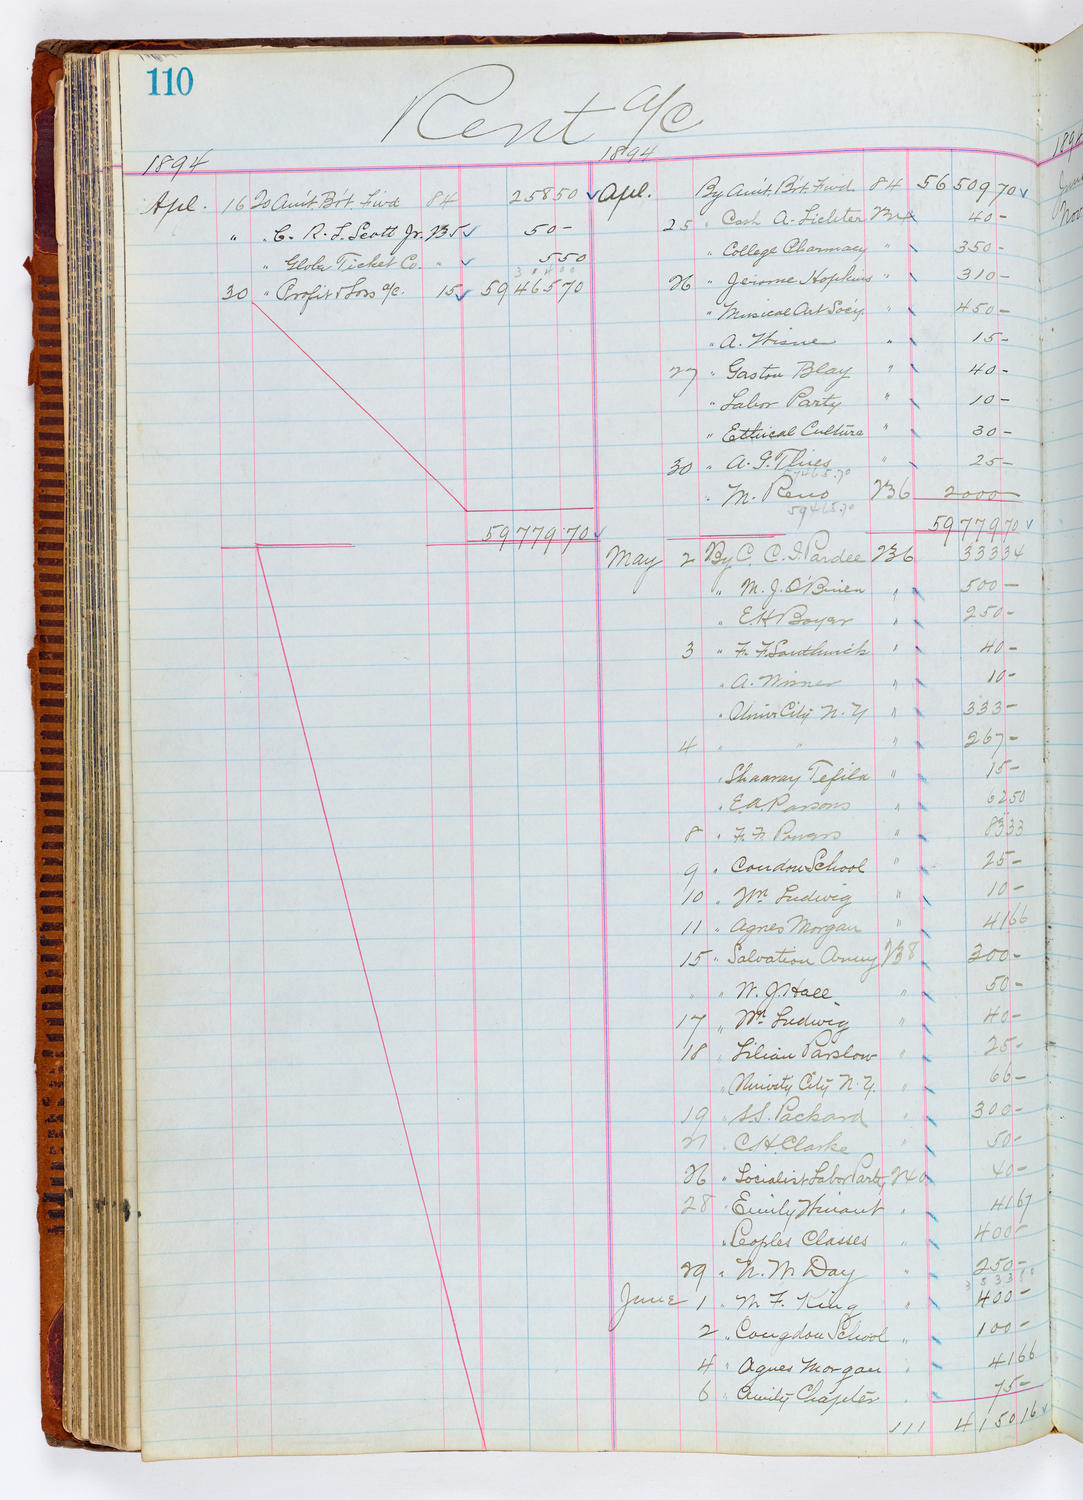 110
Rent a/c
1894
Apl. 16 To Am't. Br't. Fwd 84 258 50
" " C. R. L. Scott Jr. 235 50 -
" Globe Ticket Co. " 5 50
314 00
30 " Profit & Loss a/c. 15 59 465 70
59 779 70
1894
Apl. By Am't. Br't. Fwd. 84 56 509 70
25 " Cash A. Lichter 234 40 -
" College Pharmacy " 350 -
26 " Jerome Hopkins " 310 -
" Musical Art Soc'y " 450 -
" A. Wisne " 15 -
27 " Gaston Blay " 40 -
" Labor Party " 10 -
" Ethical Culture " 30 -
30 " A. G. Thies " 25 -
57465.70
" M. Reno 236 2000 -
59465.70
59 779 70
May 2 By C. C. I. Pardee 236 333 34
" M. J. O'Brien " 500 -
" E H Boyer " 250 -
3 " F. F. Southwick " 40 -
" A. Wisner " 10 -
" Univ City N. Y " 333 -
4 " " " 267 -
" Shaaray Tefila " 15 -
" E. A. Parsons " 62 50
8 " F. F. Powers " 83 33
9 " Condon School " 25 -
10 " Wm Ludwig " 10 -
11 " Agnes Morgan " 41 66
15 " Salvation Army 238 300 -
" " W. J. Hall " 50 -
17 " Wm. Ludwig " 40 -
18 " Lilian Parslow " 25 -
" Univsty City N. Y. " 66 -
19 " S. S. Packard " 300 -
21 " C. H. Clarke " 50 -
26 " Socialist Labor Party 240 40 -
28 " Emily Winant " 41 67
" Peoples Classes " 400 -
29 " N. W Day " 250 -
June 1 " M. F. King " 400 -
2 " Congdon School " 100 -
4 " Agnes Morgan " 41 66
6 " Amity Chapter " 75 -
111 4150 16